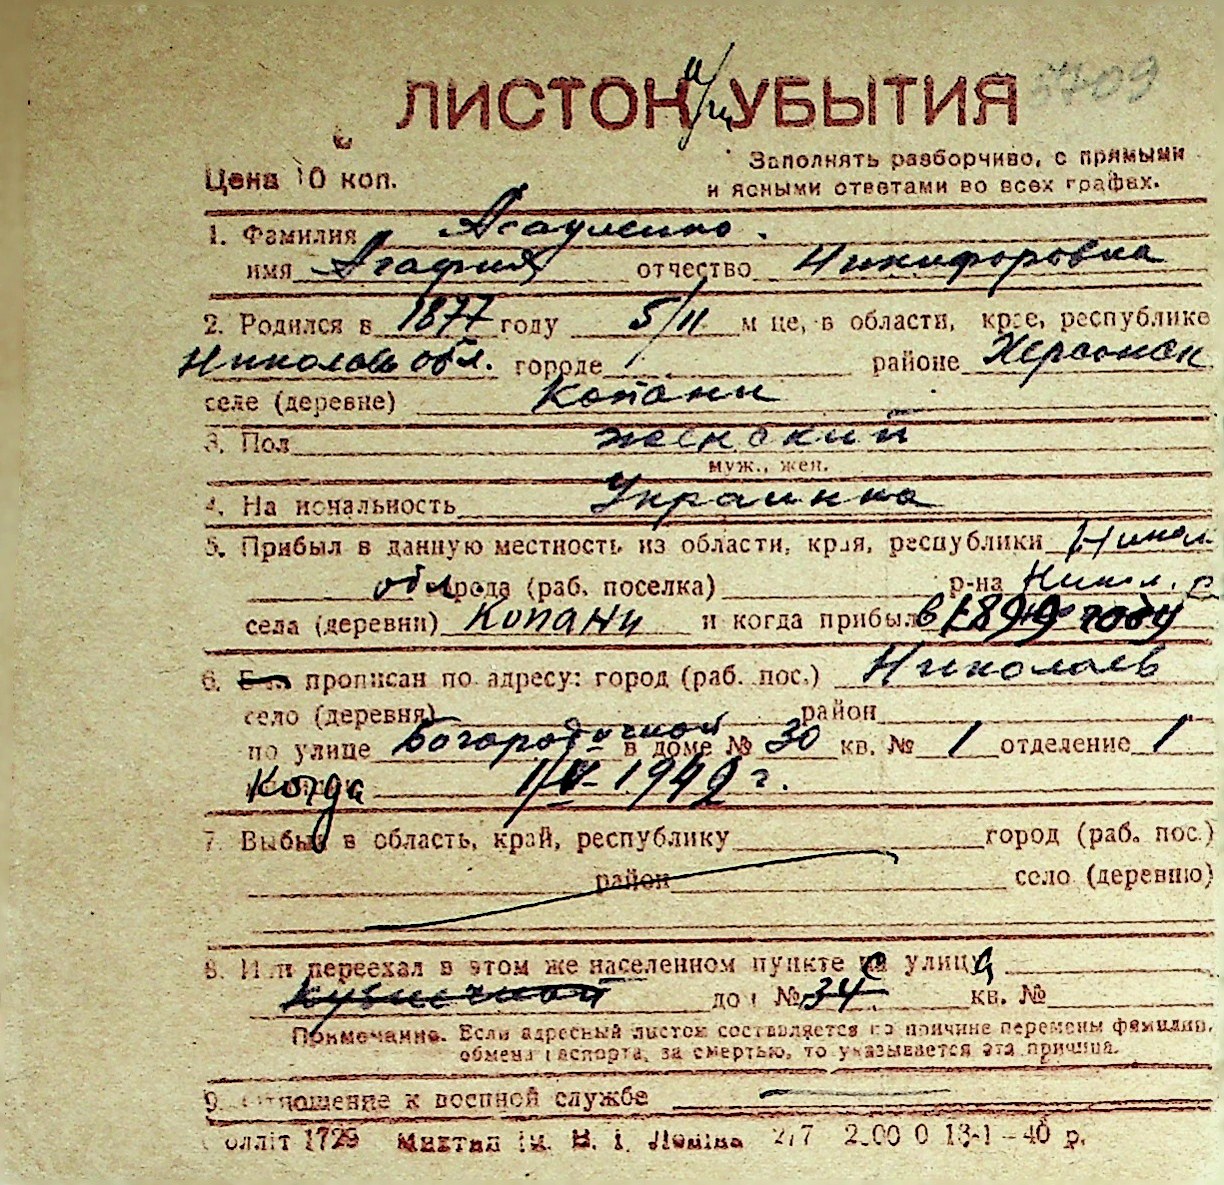 ЛИСТОК УБЫТИЯ 3709
Цена 10 коп. Заполнять разборчиво, с прямыми
и ясными ответами во всех графах.
1. Фамилия
имя Агафия отчество Никифоровна
2. Родился в 1877 году 5/II м це, в области, крае, республике
Николаев обл. городе районе Херсонск
селе (деревне) Копани
3. Пол женский
муж., жен.
4. На иональность Украинка
5. Прибыл в данную местность из области, края, республики Никол.
обл. города (раб. поселка) р-на Никол.
села (деревни) Копани и когда прибыл в 1899 году
6. прописан по адресу: город (раб. пос.) Николаев
село (деревня) район
по улице в доме № 30 кв. № 1 отделение 1
Когда 1942 г.
7. Выбыл в область, край, республику город (раб. пос.)
район село (деревню)
8. Или переехал в этом же населенном пункте с улицы
Кузнечной дом № 34 кв. №
Примечание. Если адресный листок составляется по причине перемены фамилии,
обмена паспорта, за смертью, то указывается эта причина.
9. Отношение к военной службе
оллiт 1729 Миктип iм. В. I. Ленiна 13-1-40 р.